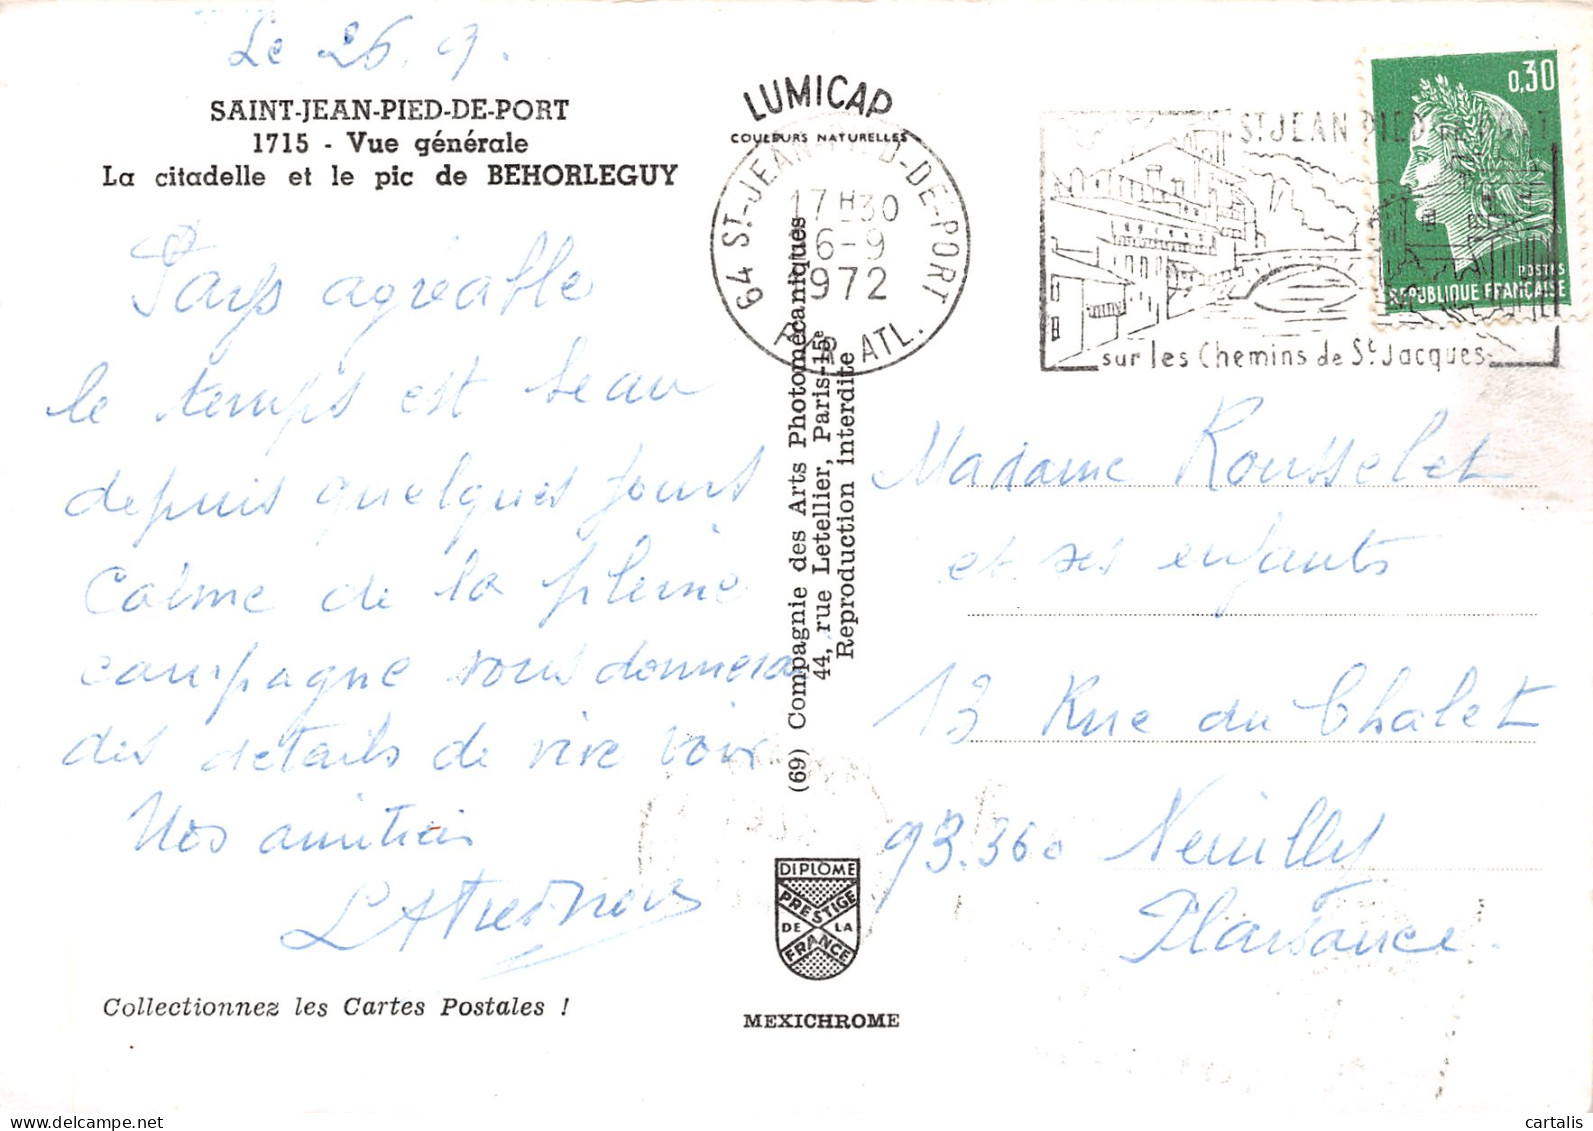 Le 26.9.
SAINT-JEAN-PIED-DE-PORT
1715 - Vue générale
La citadelle et le pic de BEHORLEGUY
Pays agréable
le temps est beau
depuis quelques jours
Calme de la pleine
campagne vous donnera
des details de vive voix
Nos amitiés
Collectionnez les Cartes Postales !
LUMICAP
COULEURS NATURELLES
64 ST-JEAN-PIED-DE-PORT
17H30
6-9
1972
PYR. ATL.
(69) Compagnie des Arts Photomécaniques
44, rue Letellier, Paris-15e
Reproduction interdite
DIPLOME
PRESTIGE
DE LA
FRANCE
MEXICHROME
ST JEAN PIED DE PORT
sur les Chemins de St Jacques
0,30
POSTES
REPUBLIQUE FRANCAISE
Madame Rousselet
et ses enfants
13 Rue du Chalet
93.360 Neuilly
Plaisance.
cartalis